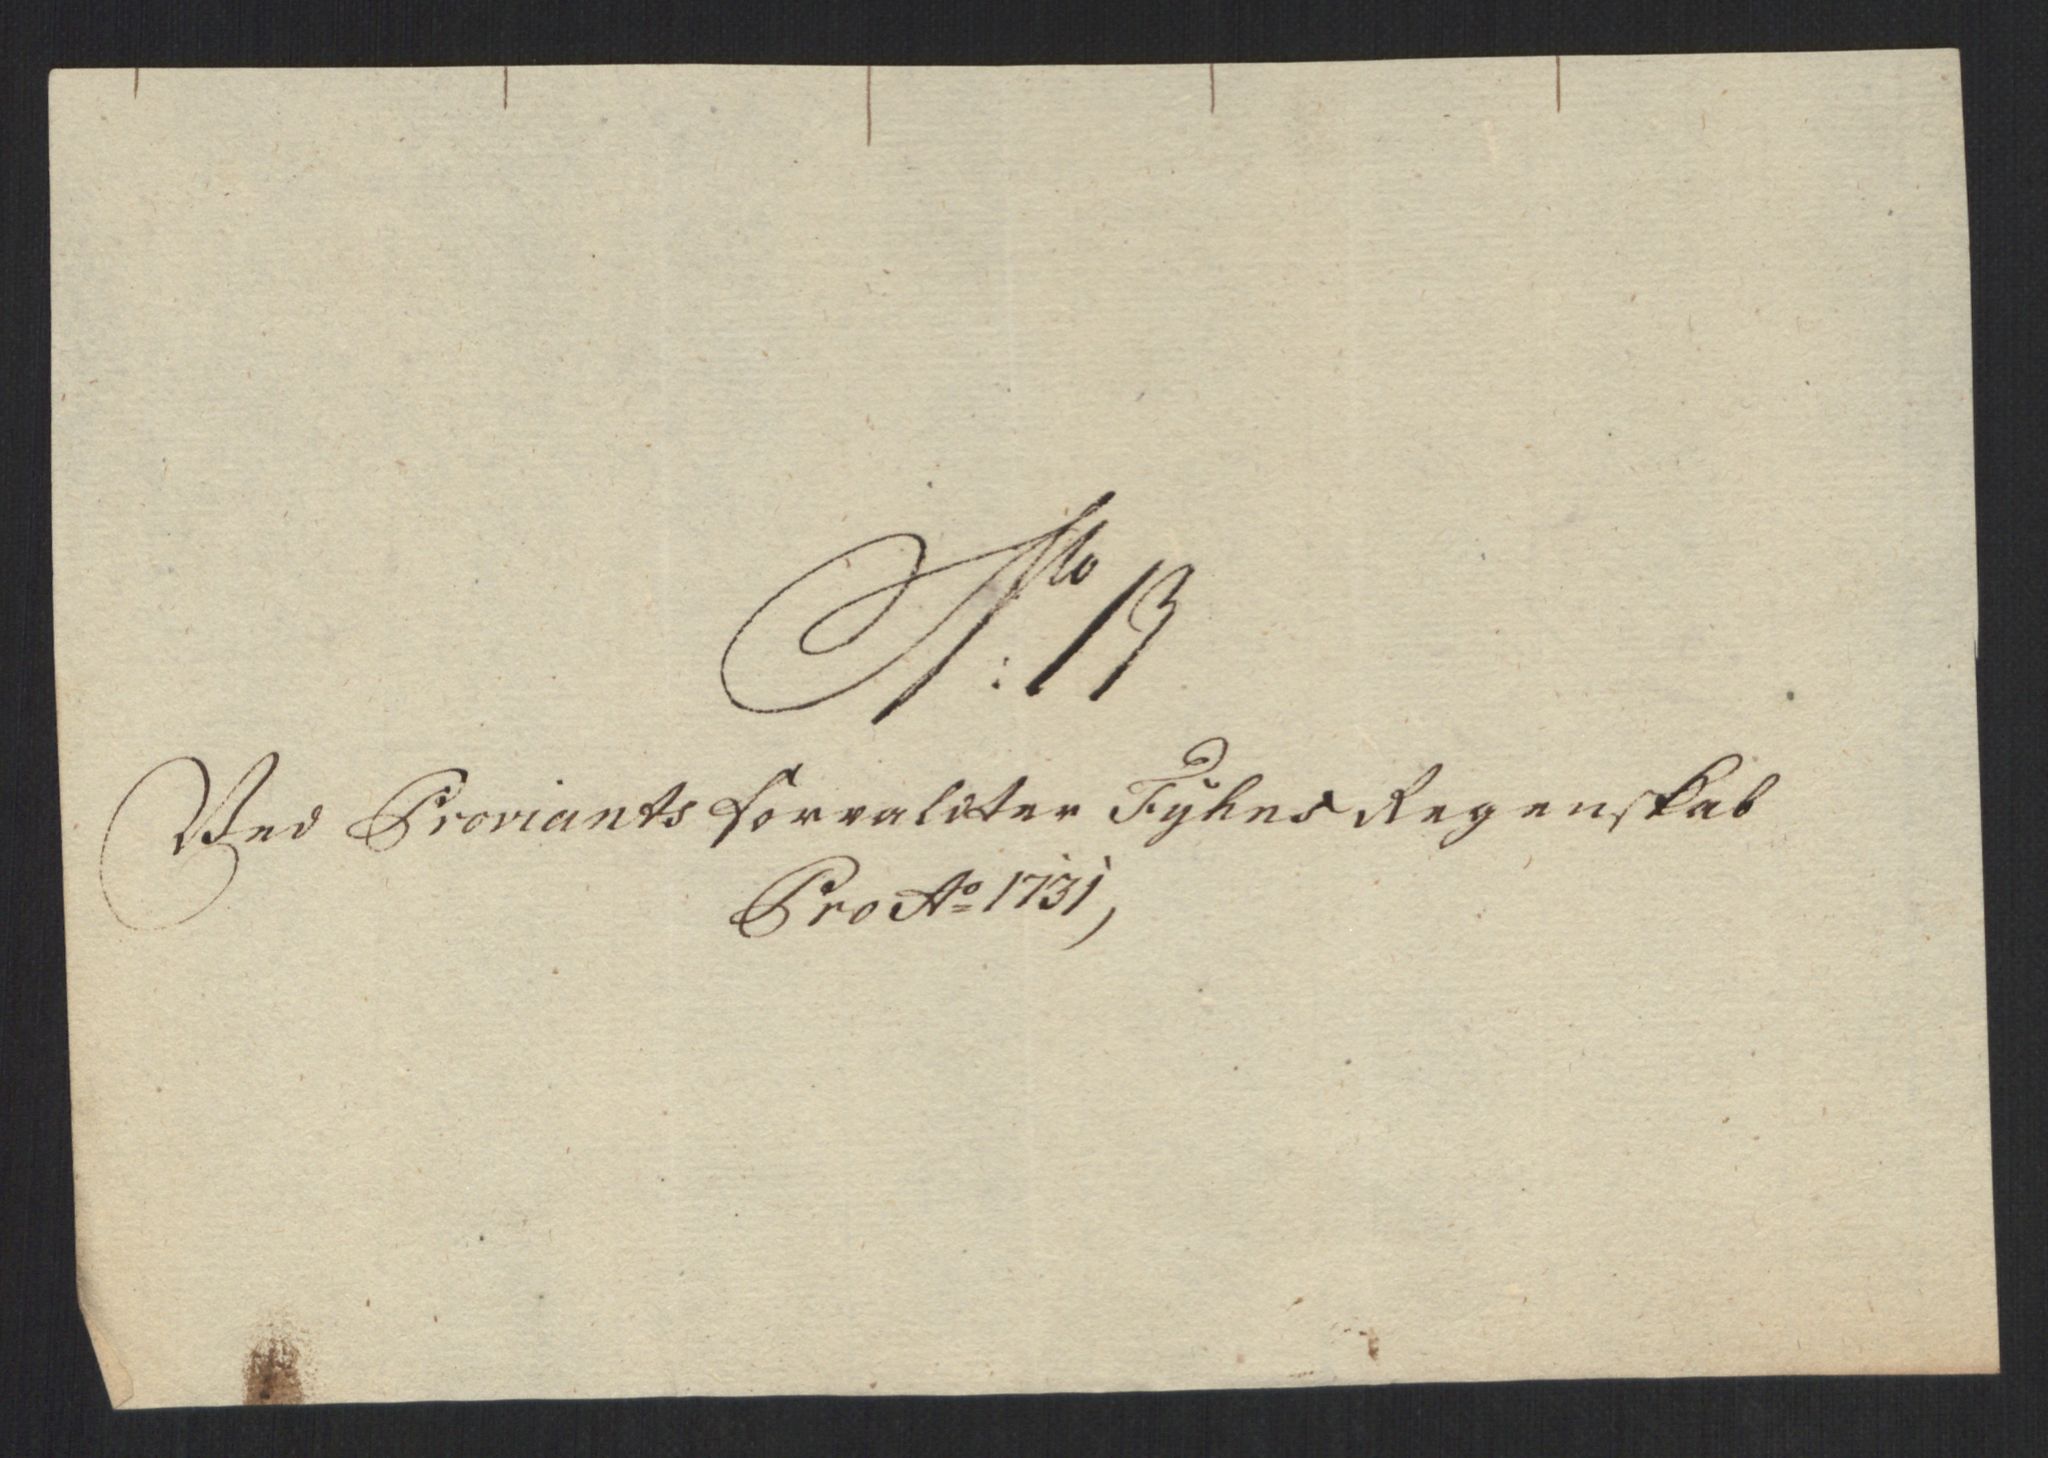 No: 13
Ved Proviants forvalter Fÿhns Regenskab
Pro Ao 1731,